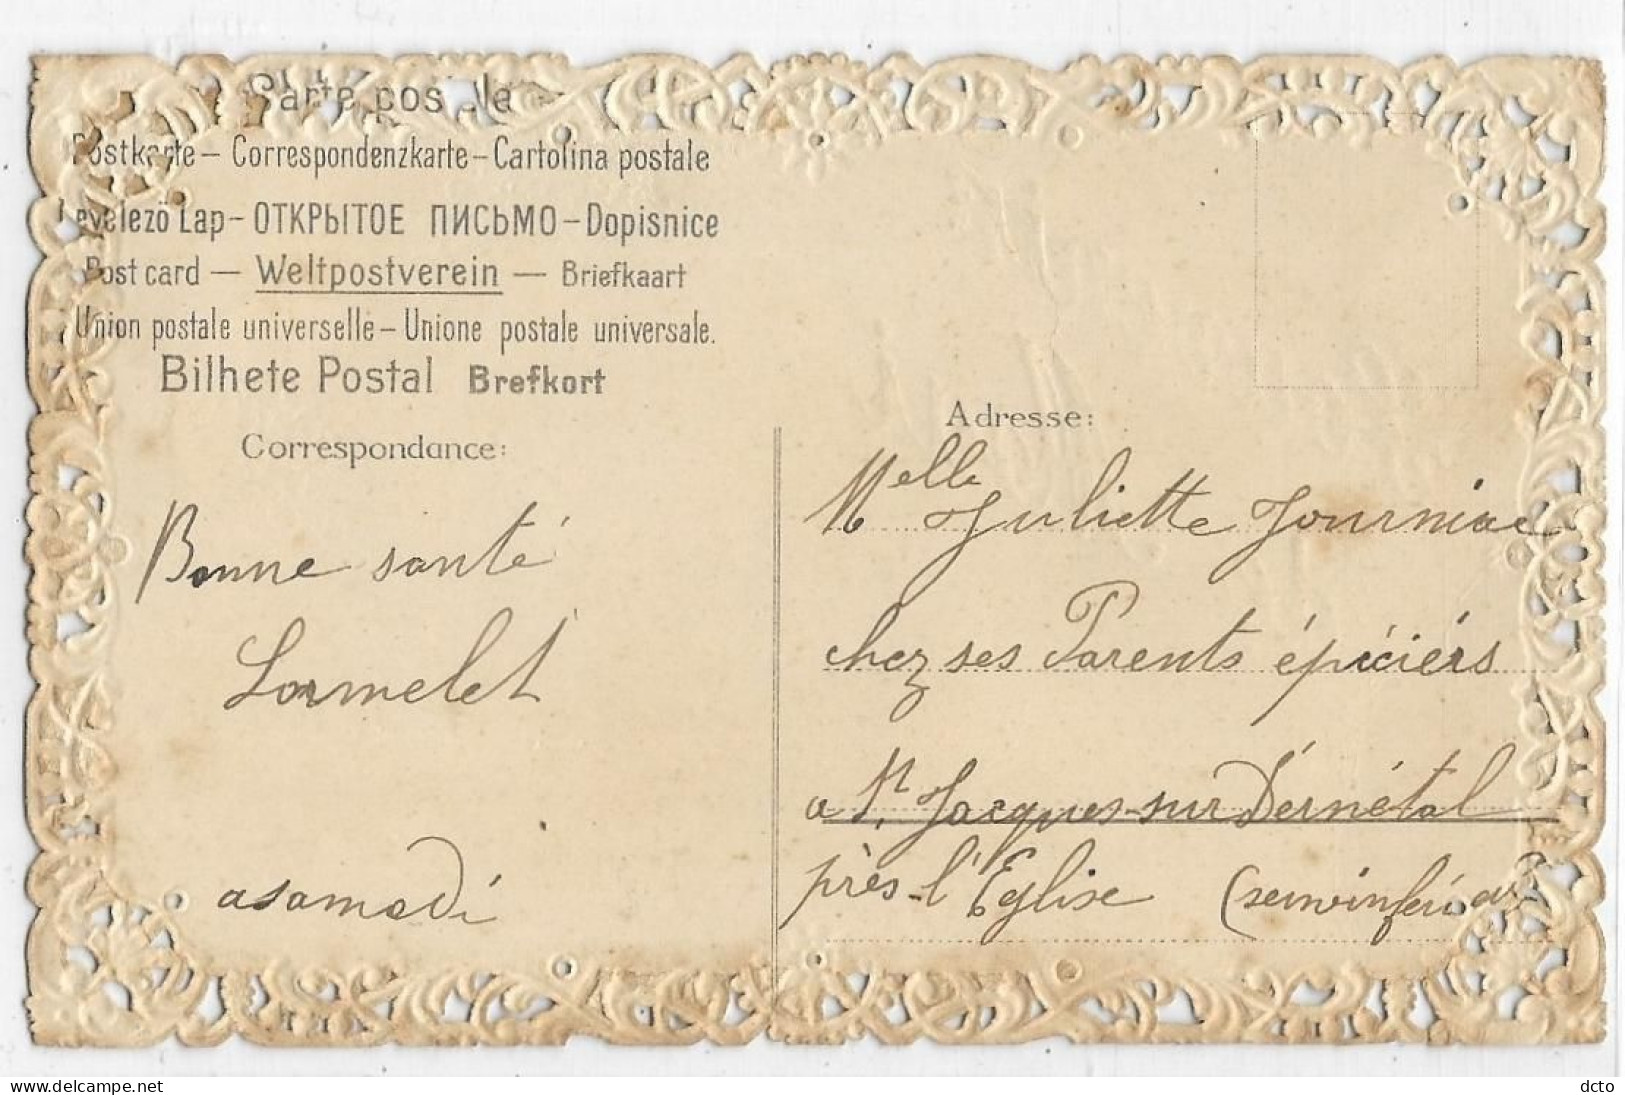 Carte postale
Postkarte – Correspondenzkarte – Cartolina postale
Levelezö Lap – ОТКРЫТОЕ ПИСЬМО – Dopisnice
Post card — Weltpostverein — Briefkaart
Union postale universelle – Unione postale universale.
Bilhete Postal Brefkort
Correspondance:
Bonne santé
Lormelet
asamedi
Adresse:
Melle Juliette Journiac
chez ses Parents épiciérs
a St. Jacques-sur Dérnétal
près-l'Eglise
www.delcampe.net
dcto